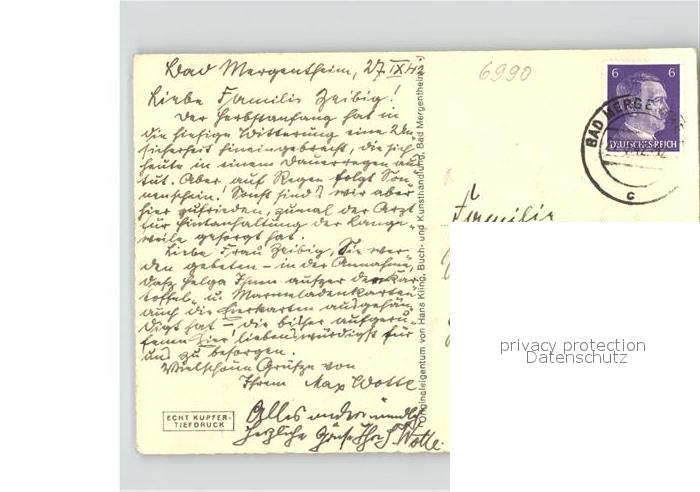 Bad Mergentheim, 27.IX.42
6990
Liebe Familie Zeibig!
Der Herbstanfang hat in
die hiesige Witterung eine Un-
sicherheit hineingebracht, die sich
heute in einem Dauerregen aus
tut. Aber auf Regen folgt Son-
nenschein! Sonst sind wir aber
hier zufrieden, zumal der Arzt
für Hintanhaltung der Lange-
weile gesorgt hat.
Liebe Frau Zeibig, Sie wer-
den gebeten – in der Annahme,
daß Helga Ihnen außer den Kar-
toffel- u. Marmeladenkarten
auch die Eierkarten ausgehän-
digt hat – die bisher aufgeru-
fenen Eier liebenswürdigst für
uns zu besorgen.
Vielschöne Grüße von
Ihrem Max Wotte
Alles andere mündlich
Herzliche Grüße Ihre Wotte.
ECHT KUPFER-
TIEFDRUCK
Originaleigentum von Hans Kling, Buch- und Kunsthandlung, Bad Mergentheim
6 6
DEUTSCHES REICH
BAD MERGE
c
Familie
privacy protection
Datenschutz